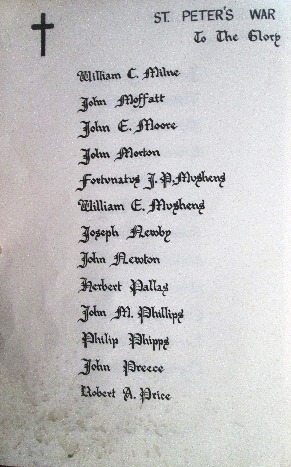 ST. PETER'S WAR
To The Glory
William C. Milne
John Moffatt
John E. Moore
John Morton
Fortunatus J. P. Mushens
William E. Mushens
Joseph Newby
John Newton
Herbert Pallas
John M. Phillips
Philip Phipps
John Preece
Robert A. Price